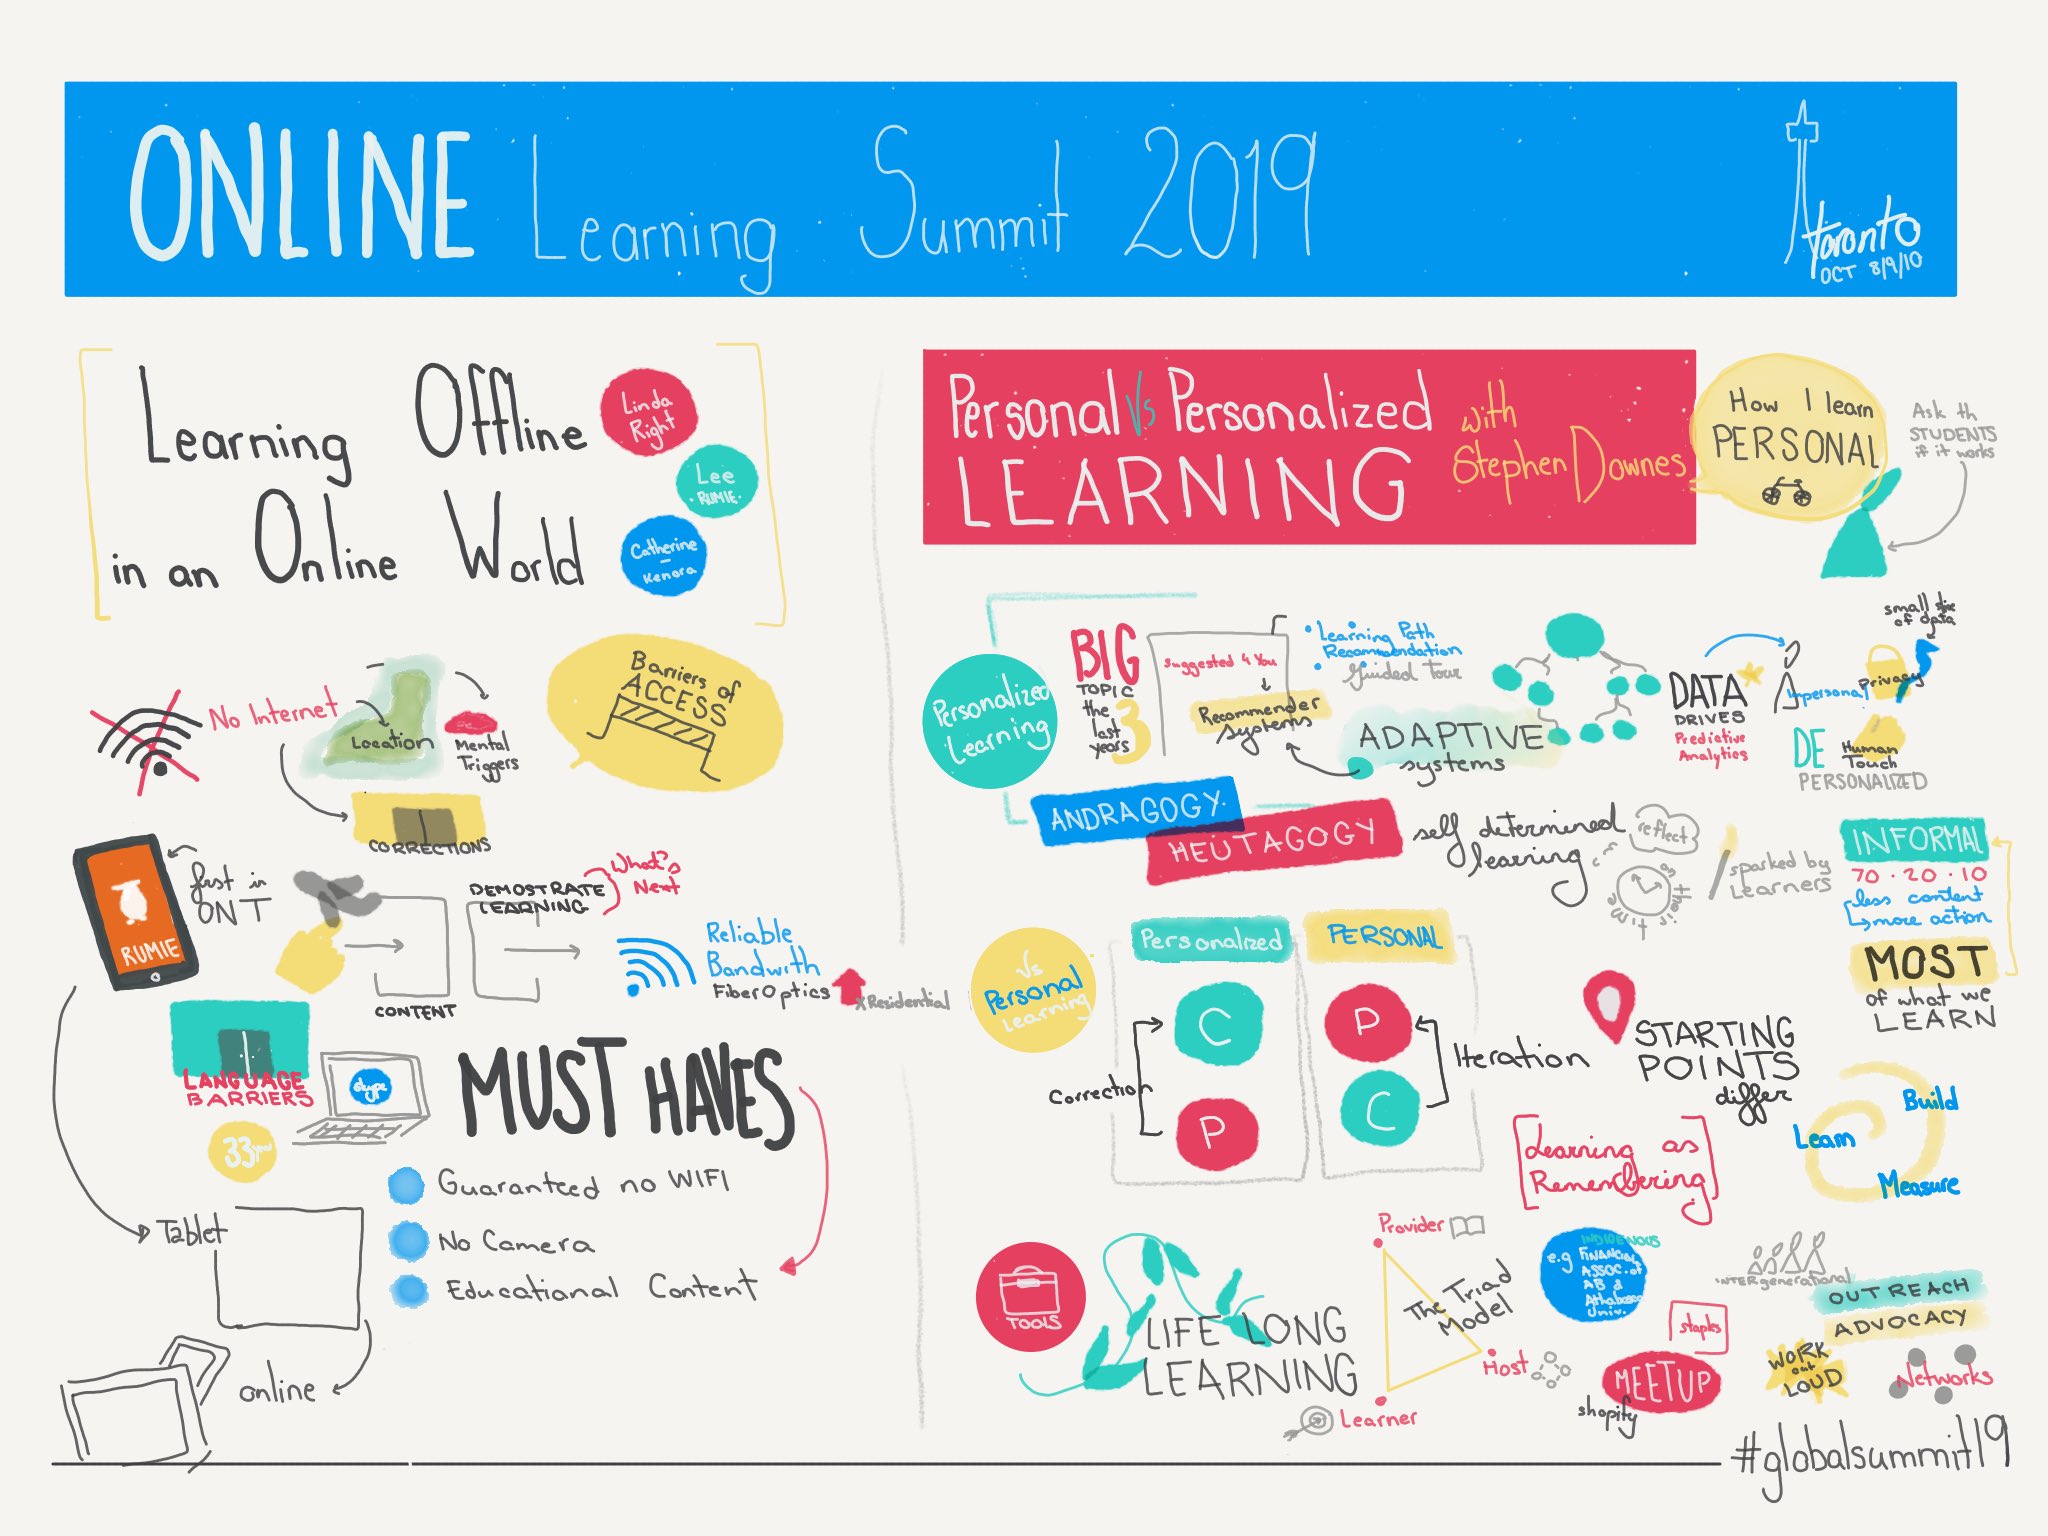 ONLINE Learning Summit 2019
Toronto
OCT 8/9/10
Learning Offline
in an Online World
Linda
Right
Lee
RUMIE
Catherine
Kenora
No Internet
Location
Mental
Triggers
Barriers of
ACCESS
CORRECTIONS
first in
ONT
RUMIE
DEMOSTRATE
LEARNING
What's
Next
CONTENT
Reliable
Bandwith
Fiber Optics
x Residential
LANGUAGE
BARRIERS
skype
33
MUST HAVES
Guaranteed no WIFI
No Camera
Educational Content
Tablet
online
Personal Vs Personalized
LEARNING
with
Stephen Downes
How I learn
PERSONAL
Ask th
STUDENTS
if it works
Personalized
Learning
BIG
TOPIC
the
last
3
years
Suggested 4 You
Recommender
systems
Learning Path
Recommendation
Guided Tour
ADAPTIVE
systems
DATA
DRIVES
Predictive
Analytics
Impersonal
Privacy
small slice
of data
DE
Human
Touch
PERSONALIZED
ANDRAGOGY
HEUTAGOGY
self determined
learning
reflect
sparked by
Learners
INFORMAL
70 · 20 · 10
less content
more action
MOST
of what we
LEARN
Vs
Personal
Learning
Personalized
C
P
Correction
PERSONAL
P
C
Iteration
STARTING
POINTS
differ
Learning as
Remembering
Build
Learn
Measure
TOOLS
LIFE LONG
LEARNING
Provider
The Triad
Model
Host
Learner
INDIGENOUS
e.g Financial
ASSOC. of
AB &
Athabasca
Univ.
INTERgenerational
OUTREACH
ADVOCACY
staples
MEETUP
shopify
WORK
out
LOUD
Networks
#globalsummit19